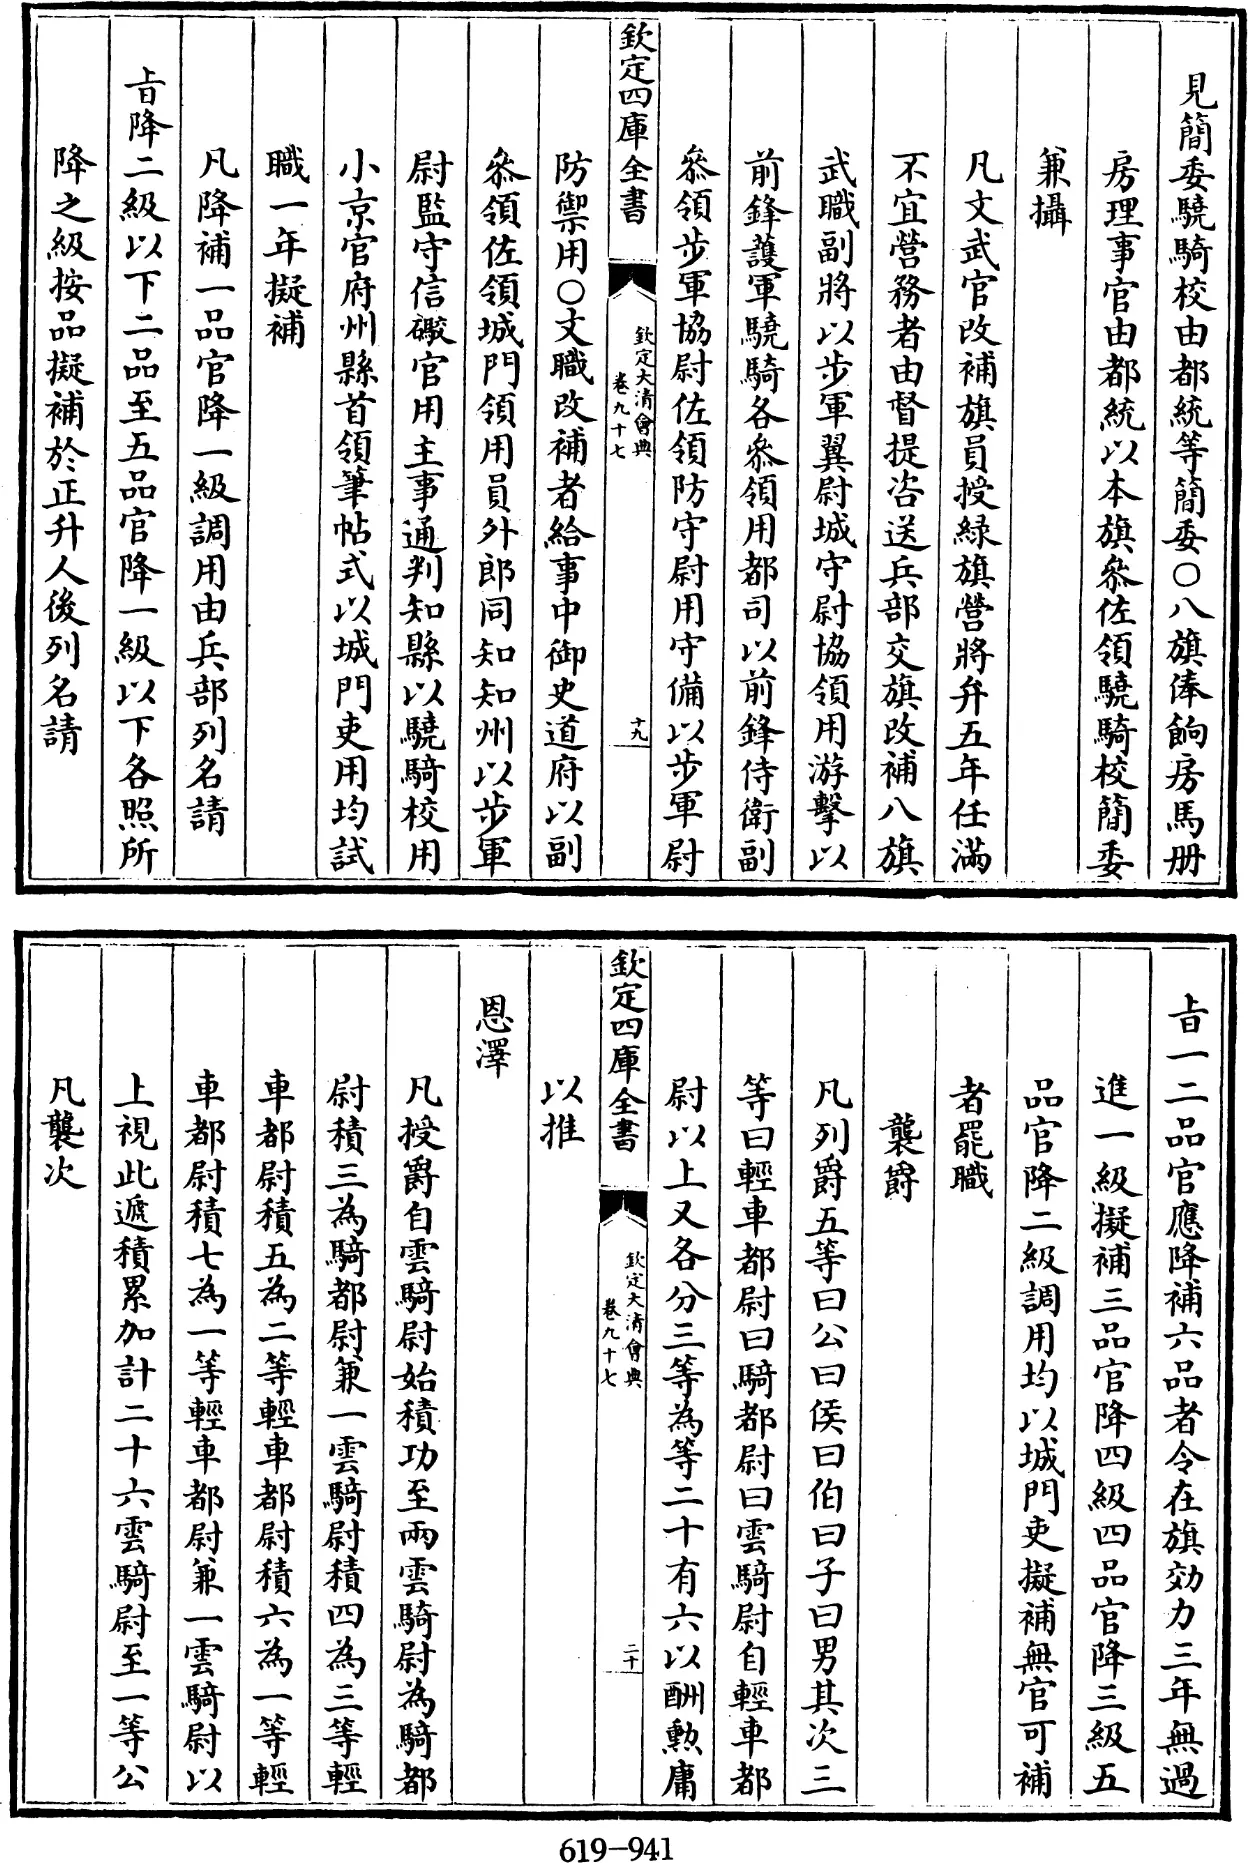 見簡委驍騎校由都統等簡委〇八旗俸餉房馬册
房理事官由都統以本旗叅佐領驍騎校簡委
兼攝
凡文武官改補旗員授緑旗營將弁五年任滿
不宜營務者由督提咨送兵部交旗改補八旗
武職副將以步軍翼尉城守尉協領用游擊以
前鋒護軍驍騎各叅領用都司以前鋒侍衛副
叅領步軍協尉佐領防守尉用守備以步軍尉
欽定四庫全書
欽定大清會典
卷九十七
十九
防禦用〇文職改補者給事中御史道府以副
叅領佐領城門領用員外郎同知知州以步軍
尉監守信礮官用主事通判知縣以驍騎校用
小京官府州縣首領筆帖式以城門吏用均試
職一年擬補
凡降補一品官降一級調用由兵部列名請
旨降二級以下二品至五品官降一級以下各照所
降之級按品擬補於正升人後列名請
旨一二品官應降補六品者令在旗効力三年無過
進一級擬補三品官降四級四品官降三級五
品官降二級調用均以城門吏擬補無官可補
者罷職
襲爵
凡列爵五等曰公曰侯曰伯曰子曰男其次三
等曰輕車都尉曰騎都尉曰雲騎尉自輕車都
尉以上又各分三等為等二十有六以酬勲庸
欽定四庫全書
欽定大清會典
卷九十七
二十
以推
恩澤
凡授爵自雲騎尉始積功至兩雲騎尉為騎都
尉積三為騎都尉兼一雲騎尉積四為三等輕
車都尉積五為二等輕車都尉積六為一等輕
車都尉積七為一等輕車都尉兼一雲騎尉以
上視此遞積累加計二十六雲騎尉至一等公
凡襲次
619-941